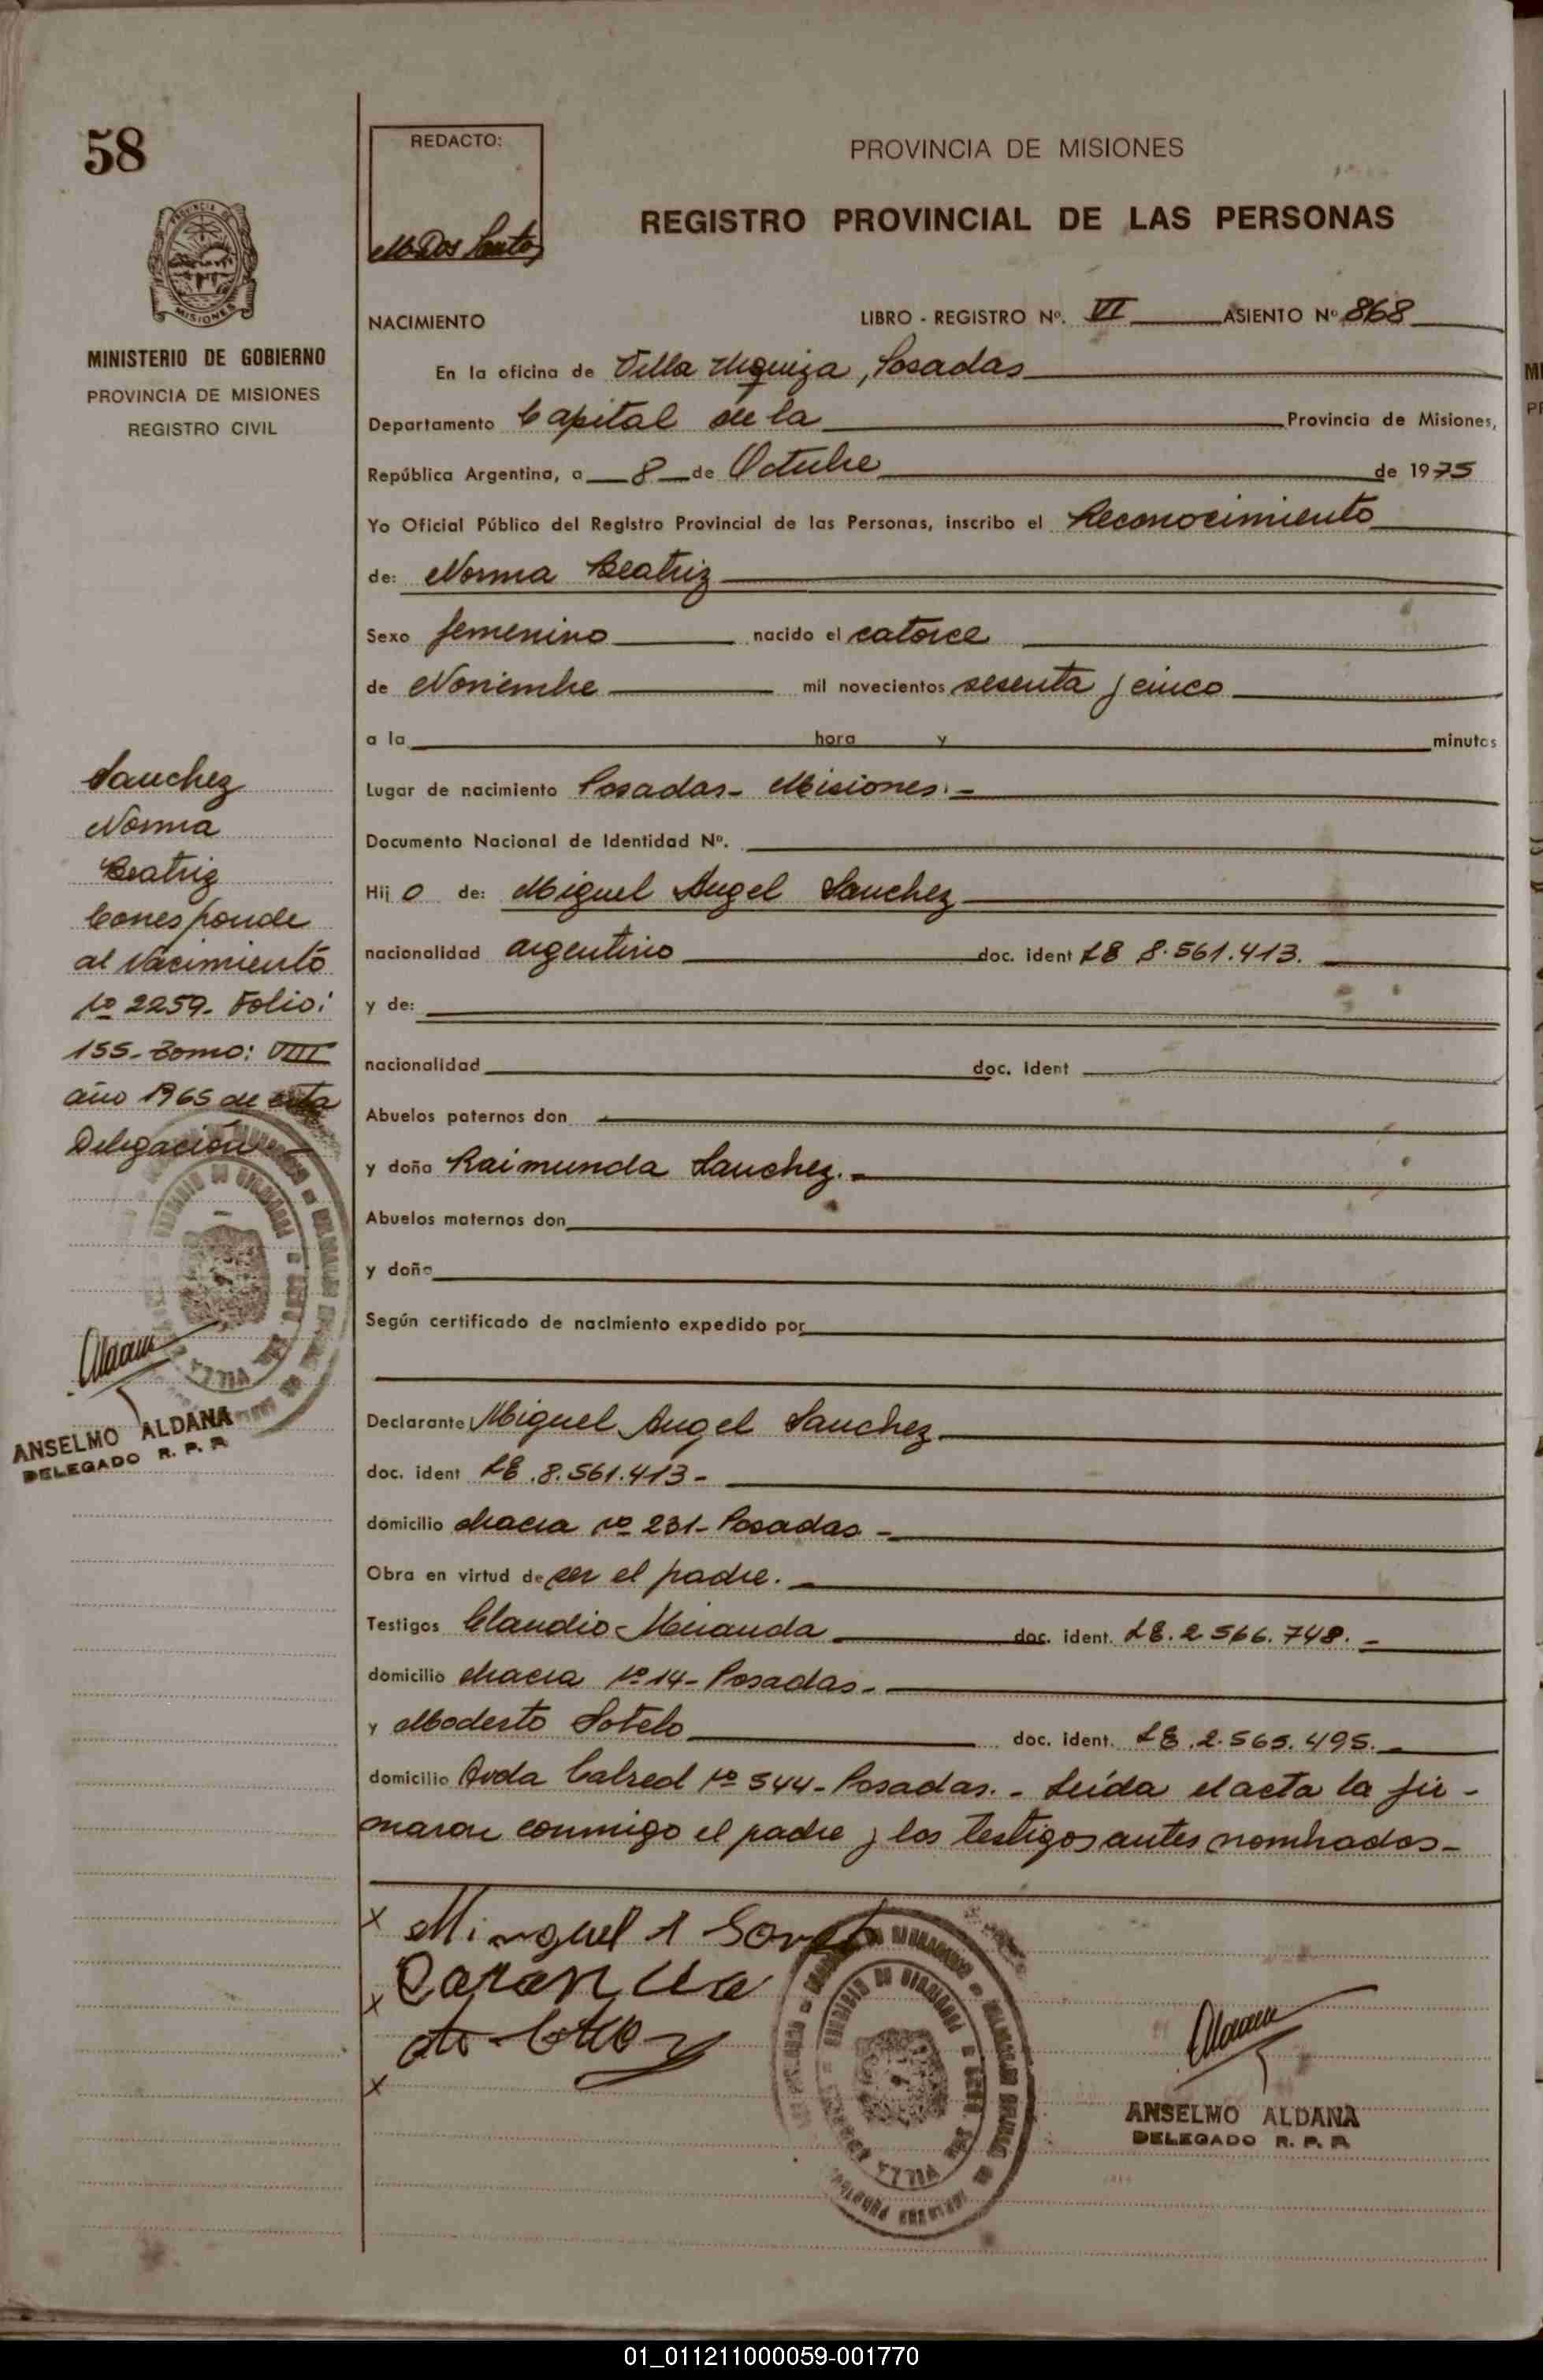 58
PROVINCIA DE MISIONES
MINISTERIO DE GOBIERNO
PROVINCIA DE MISIONES
REGISTRO CIVIL
Sanchez
Norma
Beatriz
Corresponde
al Nacimiento
Nº 2259. Folio:
155-Tomo: VIII
año 1965 de esta
Delegación
ANSELMO ALDANA
DELEGADO R. P. P.
REDACTO:
M. Dos Santos
PROVINCIA DE MISIONES
REGISTRO PROVINCIAL DE LAS PERSONAS
NACIMIENTO LIBRO - REGISTRO Nº. VI ASIENTO Nº 868
En la oficina de Villa Urquiza, Posadas
Departamento Capital de la Provincia de Misiones,
República Argentina, a 8 de Octubre de 1975
Yo Oficial Público del Registro Provincial de las Personas, inscribo el Reconocimiento
de: Norma Beatriz
Sexo femenino nacido el catorce
de Noviembre mil novecientos sesenta y cinco
a la hora y minutos
Lugar de nacimiento Posadas- Misiones.-
Documento Nacional de Identidad Nº.
Hij o de: Miguel Angel Sanchez
nacionalidad argentino doc. ident LE 8.561.413.
y de:
nacionalidad doc. ident
Abuelos paternos don
y doña Raimunda Sanchez.-
Abuelos maternos don
y doña
Según certificado de nacimiento expedido por
Declarante Miguel Angel Sanchez
doc. ident LE.8.561.413-
domicilio chacra Nº 231- Posadas-
Obra en virtud de ser el padre.-
Testigos Claudio Miranda doc. ident. LE.2.566.748.-
domicilio chacra Nº 14- Posadas.-
y Modesto Sotelo doc. ident. LE.2.565.495.-
domicilio Avda Cabred Nº 544- Posadas.- Leída el acta la fir-
maron conmigo el padre y los testigos antes nombrados-
x
x
x
ANSELMO ALDANA
DELEGADO R. P. P.
01_011211000059-001770